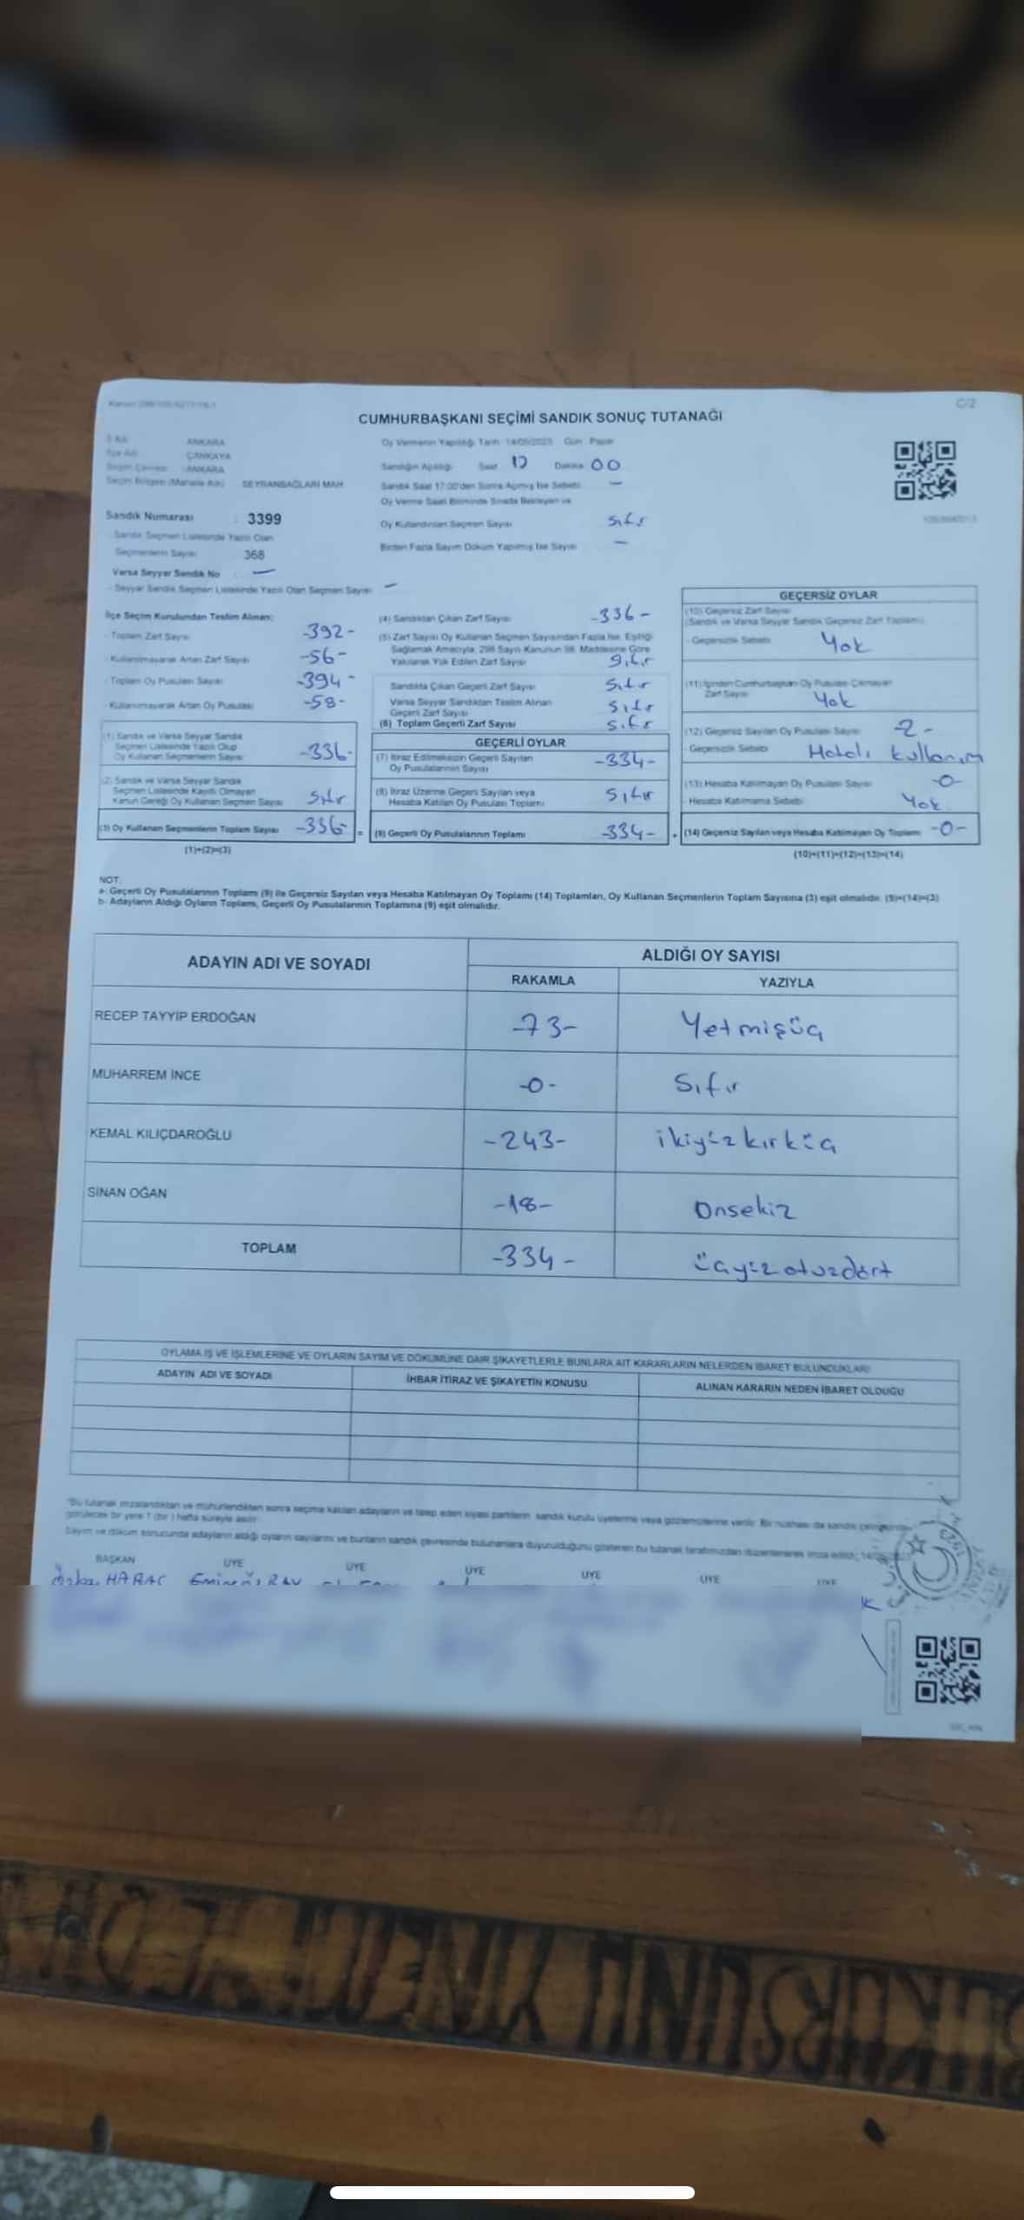 C/2
CUMHURBAŞKANI SEÇİMİ SANDIK SONUÇ TUTANAĞI
İl Adı : ANKARA
İlçe Adı : ÇANKAYA
Seçim Çevresi : ANKARA
Seçim Bölgesi (Mahalle Adı) : SEYRANBAĞLARI MAH.
Oy Vermenin Yapıldığı Tarih: 14/05/2023 Gün: Pazar
Sandığın Açıldığı Saat 17 Dakika 00
Sandık Saat 17:00'den Sonra Açılmış İse Sebebi: -
Oy Verme Saati Bitiminde Sırada Bekleyen ve
Oy Kullandırılan Seçmen Sayısı: Sıfır
Birden Fazla Sayım Döküm Yapılmış İse Sayısı: -
Sandık Numarası : 3399
Sandık Seçmen Listesinde Yazılı Olan
Seçmenlerin Sayısı : 368
Varsa Seyyar Sandık No : -
- Seyyar Sandık Seçmen Listesinde Yazılı Olan Seçmen Sayısı: -
İlçe Seçim Kurulundan Teslim Alınan:
- Toplam Zarf Sayısı : -392-
- Kullanılmayarak Artan Zarf Sayısı : -56-
- Toplam Oy Pusulası Sayısı : -394-
- Kullanılmayarak Artan Oy Pusulası : -58-
(1) Sandık ve Varsa Seyyar Sandık
Seçmen Listesinde Yazılı Olup
Oy Kullanan Seçmenlerin Sayısı : -336-
(2) Sandık ve Varsa Seyyar Sandık
Seçmen Listesinde Kayıtlı Olmayan
Kanun Gereği Oy Kullanan Seçmen Sayısı : Sıfır
(3) Oy Kullanan Seçmenlerin Toplam Sayısı : -336- =
(1)+(2)=(3)
(4) Sandıktan Çıkan Zarf Sayısı: -336-
(5) Zarf Sayısı Oy Kullanan Seçmen Sayısından Fazla İse, Eşitliği
Sağlamak Amacıyla, 298 Sayılı Kanunun 98. Maddesine Göre
Yakılarak Yok Edilen Zarf Sayısı : Sıfır
Sandıkta Çıkan Geçerli Zarf Sayısı Sıfır
Varsa Seyyar Sandıktan Teslim Alınan
Geçerli Zarf Sayısı Sıfır
(6) Toplam Geçerli Zarf Sayısı Sıfır
GEÇERLİ OYLAR
(7) İtiraz Edilmeksizin Geçerli Sayılan
Oy Pusulalarının Sayısı -334-
(8) İtiraz Üzerine Geçerli Sayılan veya
Hesaba Katılan Oy Pusulası Toplamı Sıfır
(9) Geçerli Oy Pusulalarının Toplamı -334- +
GEÇERSİZ OYLAR
(10) Geçersiz Zarf Sayısı
(Sandık ve Varsa Seyyar Sandık Geçersiz Zarf Toplamı)
- Geçersizlik Sebebi: Yok
(11) İçinden Cumhurbaşkanı Oy Pusulası Çıkmayan
Zarf Sayısı: Yok
(12) Geçersiz Sayılan Oy Pusulası Sayısı: -2-
- Geçersizlik Sebebi: Hatalı kullanım
(13) Hesaba Katılmayan Oy Pusulası Sayısı: -0-
- Hesaba Katılmama Sebebi: Yok
(14) Geçersiz Sayılan veya Hesaba Katılmayan Oy Toplamı -0-
(10)+(11)+(12)+(13)=(14)
NOT:
a- Geçerli Oy Pusulalarının Toplamı (9) ile Geçersiz Sayılan veya Hesaba Katılmayan Oy Toplamı (14) Toplamları, Oy Kullanan Seçmenlerin Toplam Sayısına (3) eşit olmalıdır. (9)+(14)=(3)
b- Adayların Aldığı Oyların Toplamı, Geçerli Oy Pusulalarının Toplamına (9) eşit olmalıdır.
ADAYIN ADI VE SOYADI
ALDIĞI OY SAYISI
RAKAMLA YAZIYLA
RECEP TAYYİP ERDOĞAN -73- Yetmişüç
MUHARREM İNCE -0- Sıfır
KEMAL KILIÇDAROĞLU -243- ikiyüzkırküç
SİNAN OĞAN -18- Onsekiz
TOPLAM -334- üçyüzotuzdört
OYLAMA İŞ VE İŞLEMLERİNE VE OYLARIN SAYIM VE DÖKÜMÜNE DAİR ŞİKAYETLERLE BUNLARA AİT KARARLARIN NELERDEN İBARET BULUNDUKLARI
ADAYIN ADI VE SOYADI İHBAR İTİRAZ VE ŞİKAYETİN KONUSU ALINAN KARARIN NEDEN İBARET OLDUĞU
"Bu tutanak imzalandıktan ve mühürlendikten sonra seçime katılan adayların ve talep eden siyasi partilerin sandık kurulu üyelerine veya gözlemcilerine verilir. Bir nüshası da sandık çevresinde
görülecek bir yere 1 (bir) hafta süreyle asılır.
Sayım ve döküm sonucunda adayların aldığı oyların sayılarını ve bunların sandık çevresinde bulunanlara duyurulduğunu gösteren bu tutanak tarafımızdan düzenlenerek imza edildi.
BAŞKAN ÜYE ÜYE ÜYE ÜYE ÜYE ÜYE
HARAÇ